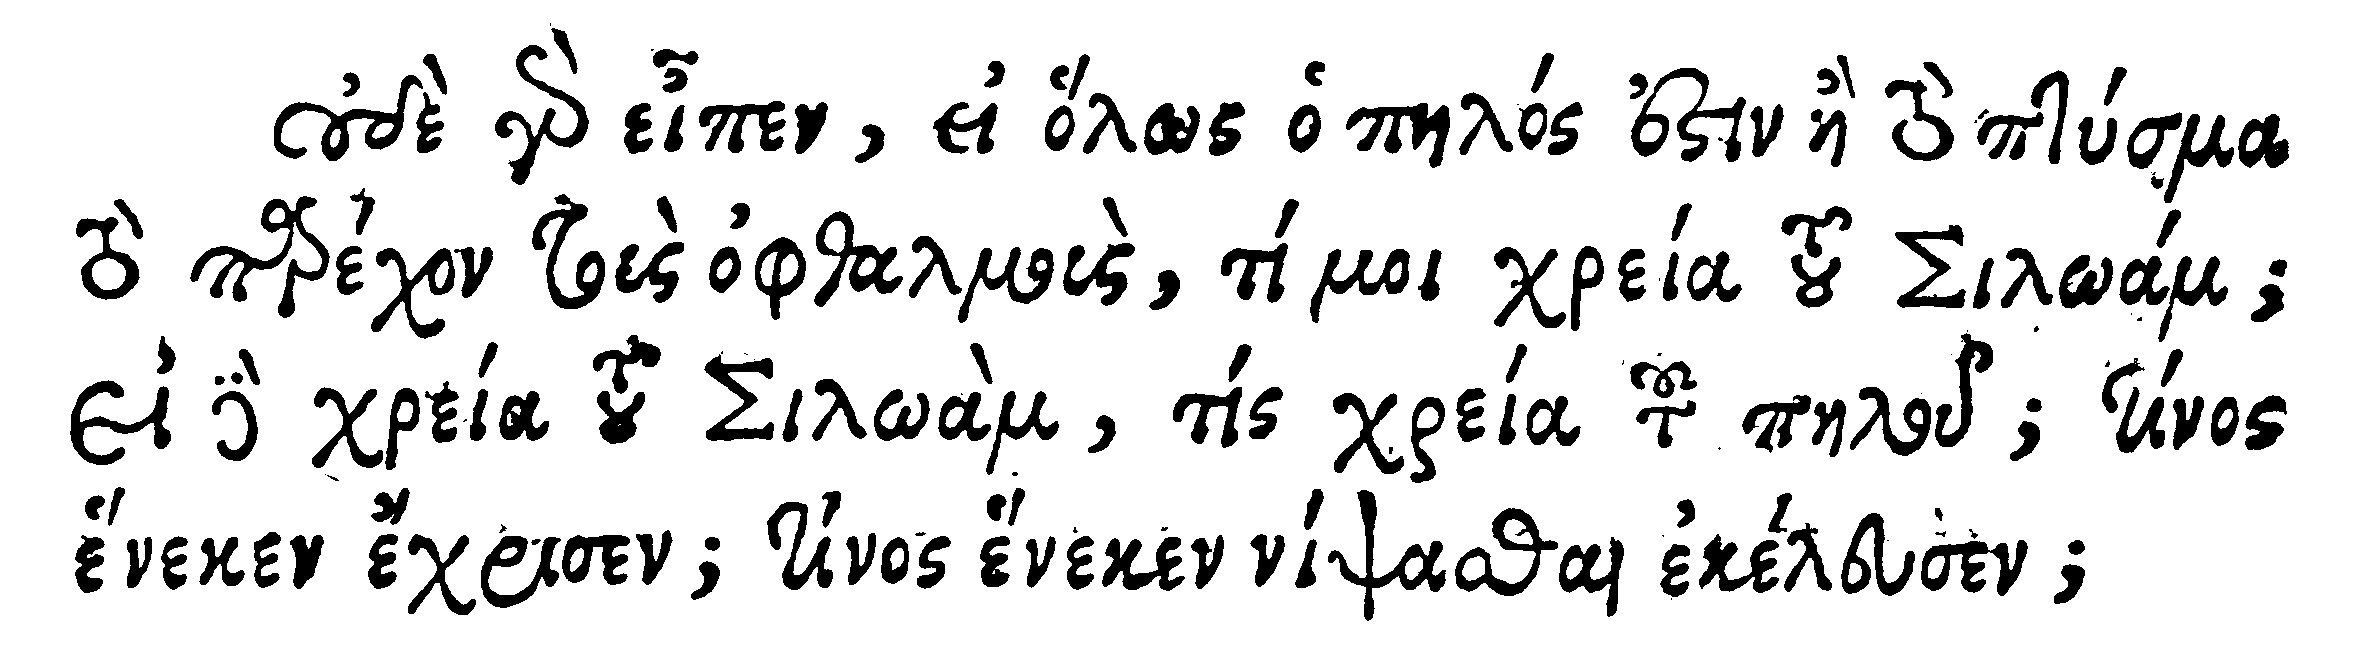 οὐδὲ γὰρ εἶπεν, εἰ ὅλως ὁ πηλός ἐστιν ἢ τὸ πτύσμα
τὸ παρέχον τοὺς ὀφθαλμοὺς, τί μοι χρεία τοῦ Σιλωάμ;
εἰ δὲ χρεία τοῦ Σιλωὰμ, τίς χρεία τοῦ πηλοῦ; τίνος
ἕνεκεν ἔχρισεν; τίνος ἕνεκεν νίψασθαι ἐκέλευσεν;